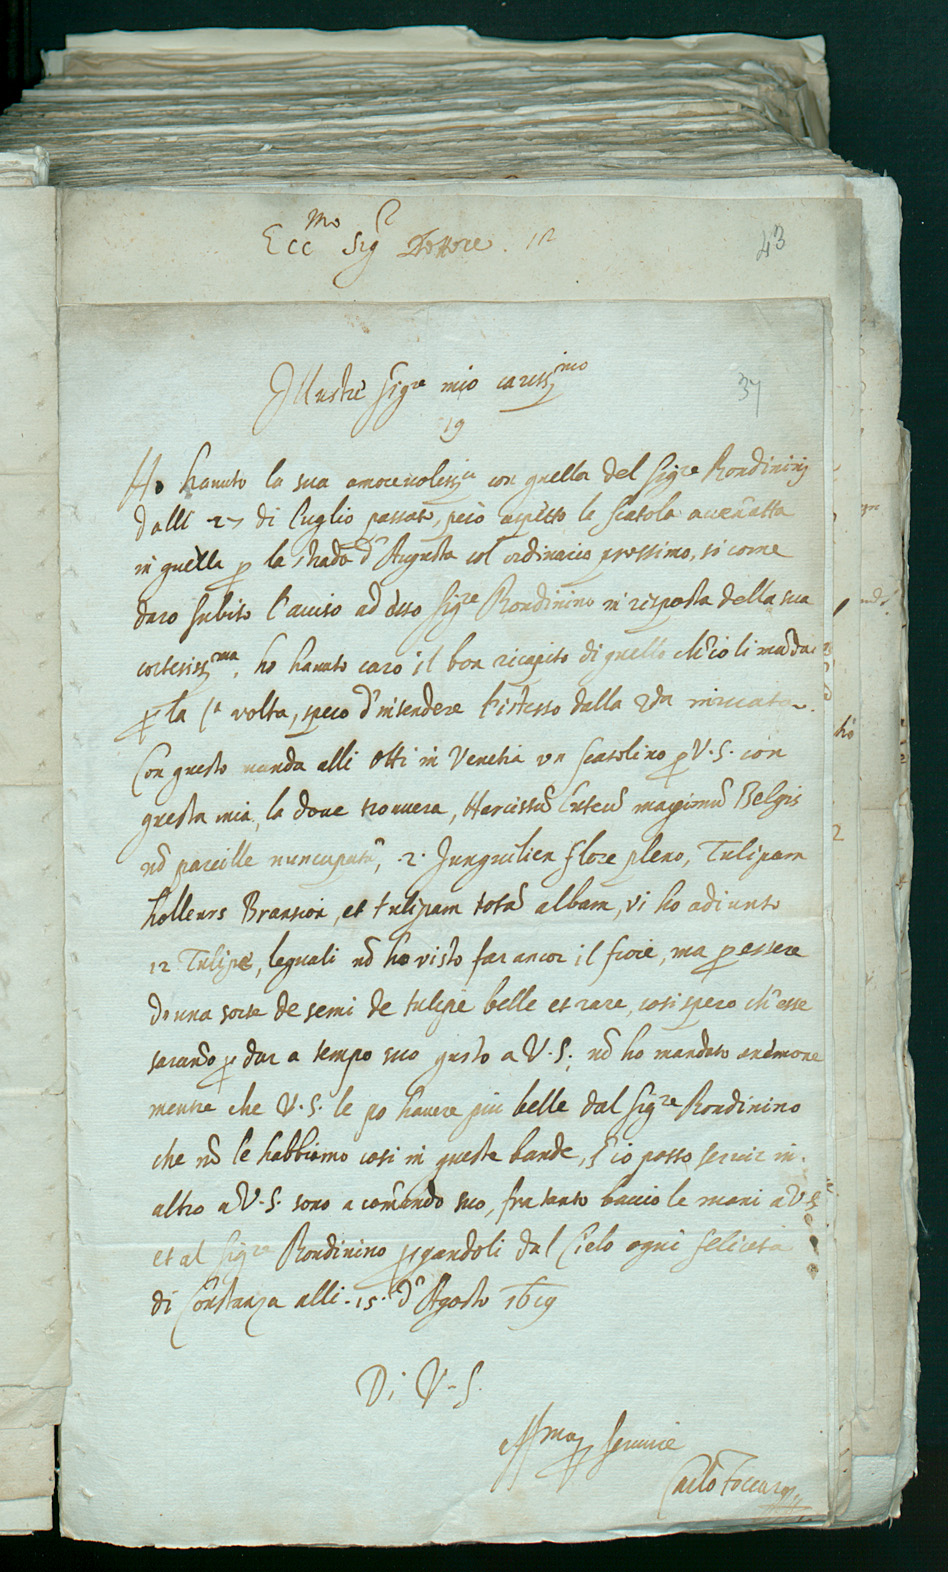 Ecc.mo Sig.r Dottore. 12
43
Illustre Sig.re mio cariss.imo
37
19
Ho hauuto la sua amoreuoliss.a con quella del Sig.re Rondinini
dalli 27 di Luglio passato, però aspetto le scatola
in quella p la strada d'Augusta col ordinario prossimo, si come
daro subito l'auiso ad esso Sig.re Rondinino in risposta della sua
cortesiss.ma, ho hauuto caro il bon ricapito di quello ch'io li
p la p.a volta, spero d'intendere l'istesso dalla 2da
Con questo manda alli Otti in Venetia un scatolino p V.S. con
questa mia, la doue trouuera, Narcissū luteū maximū Belgis
nō pareille nuncupatū, .2. Junquilien flore pleno, Tulipam
holleurs Brantion, et tulipam totā albam, vi ho adiunto
12 Tulipe, lequali nō ho visto far ancor il fiore, ma p essere
d'una sorte de semi de tulipe belle et rare, cosi spero ch'esse
sarano p dar a tempo suo gusto a V.S; nō ho mandato anemone
mentre che V.S. le po hauere piu belle dal Sig.re Rondinino
che nō le habbiamo cosi in queste bande, s'io posso seruir in
altro a V.S. sono a comādo suo, fra tanto baccio le mani a V.S.
et al Sig.re Rondinino pgandoli dal Cielo ogni felicita
di Constanza alli .15. d'Agosto 1619
Di V.S.
Aff.mo p seruire
Carlo